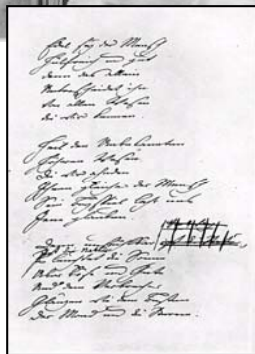 Edel sey der Mensch
Hülfreich u gut
denn das allein
Unterscheidet ihn
Von allen Wesen
die wir kennen.
Heil den Unbekannten
Höhern Wesen
Die wir ahnden
Ihnen gleiche der Mensch
Sein Beyspiel lehr uns
Jene glauben.
Denn unfühlend
Ist die Natur
Es leuchtet die Sonne
Über Bös und Gute
Und dem Verbrecher
Glänzen wie dem Besten
Der Mond und die Sterne.